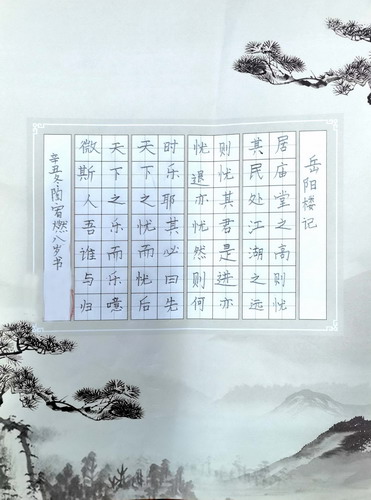 岳阳楼记
居庙堂之高则忧
其民处江湖之远
则忧其君是进亦
忧退亦忧然则何
时乐耶其必曰先
天下之忧而忧后
天下之乐而乐噫
微斯人吾谁与归
辛丑冬陶宥燃八岁书